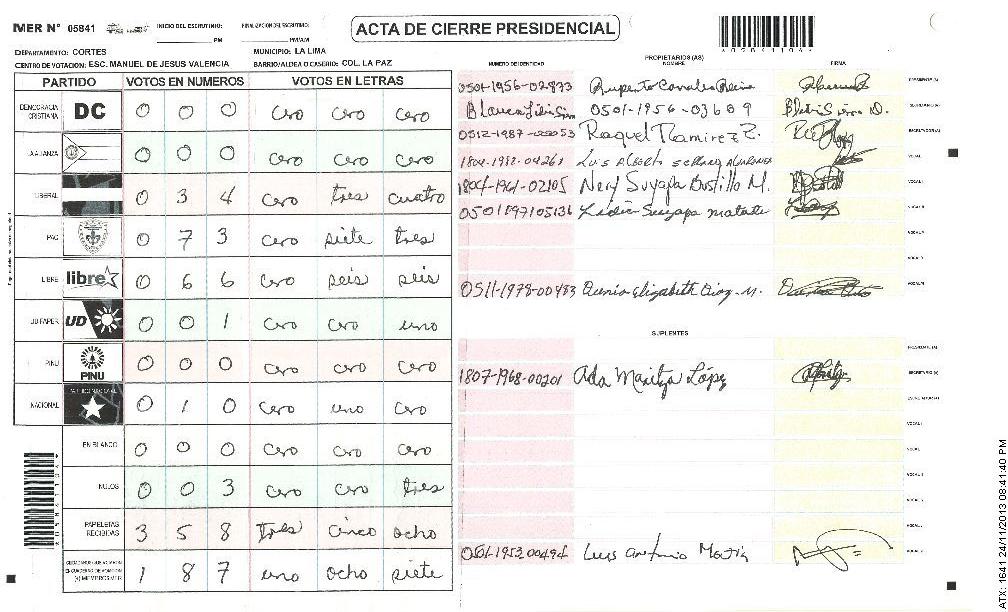 MER N° 05841
INICIO DEL ESCRUTINIO: PM
FINALIZACION DEL ESCRUTINIO: PM/AM
ACTA DE CIERRE PRESIDENCIAL
DEPARTAMENTO: CORTES
MUNICIPIO: LA LIMA
CENTRO DE VOTACION: ESC. MANUEL DE JESUS VALENCIA
BARRIO/ALDEA O CASERIO: COL. LA PAZ
PARTIDO VOTOS EN NUMEROS VOTOS EN LETRAS
DEMOCRACIA CRISTIANA DC 0 0 0 cero cero cero
LA ALIANZA 0 0 0 cero cero cero
LIBERAL 0 3 4 cero tres cuatro
PAC 0 7 3 cero siete tres
LIBRE libre 0 6 6 cero seis seis
UD FAPER UD 0 0 1 cero cero uno
PINU PINU 0 0 0 cero cero cero
NACIONAL PARTIDO NACIONAL 0 1 0 cero uno cero
EN BLANCO 0 0 0 cero cero cero
NULOS 0 0 3 cero cero tres
PAPELETAS RECIBIDAS 3 5 8 tres cinco ocho
1 8 7 uno ocho siete
NUMERO DE IDENTIDAD
PROPIETARIOS (AS)
NOMBRE
FIRMA
0501-1956-02873
0501-1956-03689
0512-1987- Raquel Ramirez Z.
1804-1982-04261 Luis Alberto
1804-1961-02105 Nery Suyapa Bustillo M.
0501197105136 Lidia Suyapa
0511-1978-00483 Elizabeth Diaz M.
SUPLENTES
1807-1968-00201 Ada Maritza López
0501-1953 00494 Luis Antonio
ATX: 1641 24/11/2013 08:41:40 PM